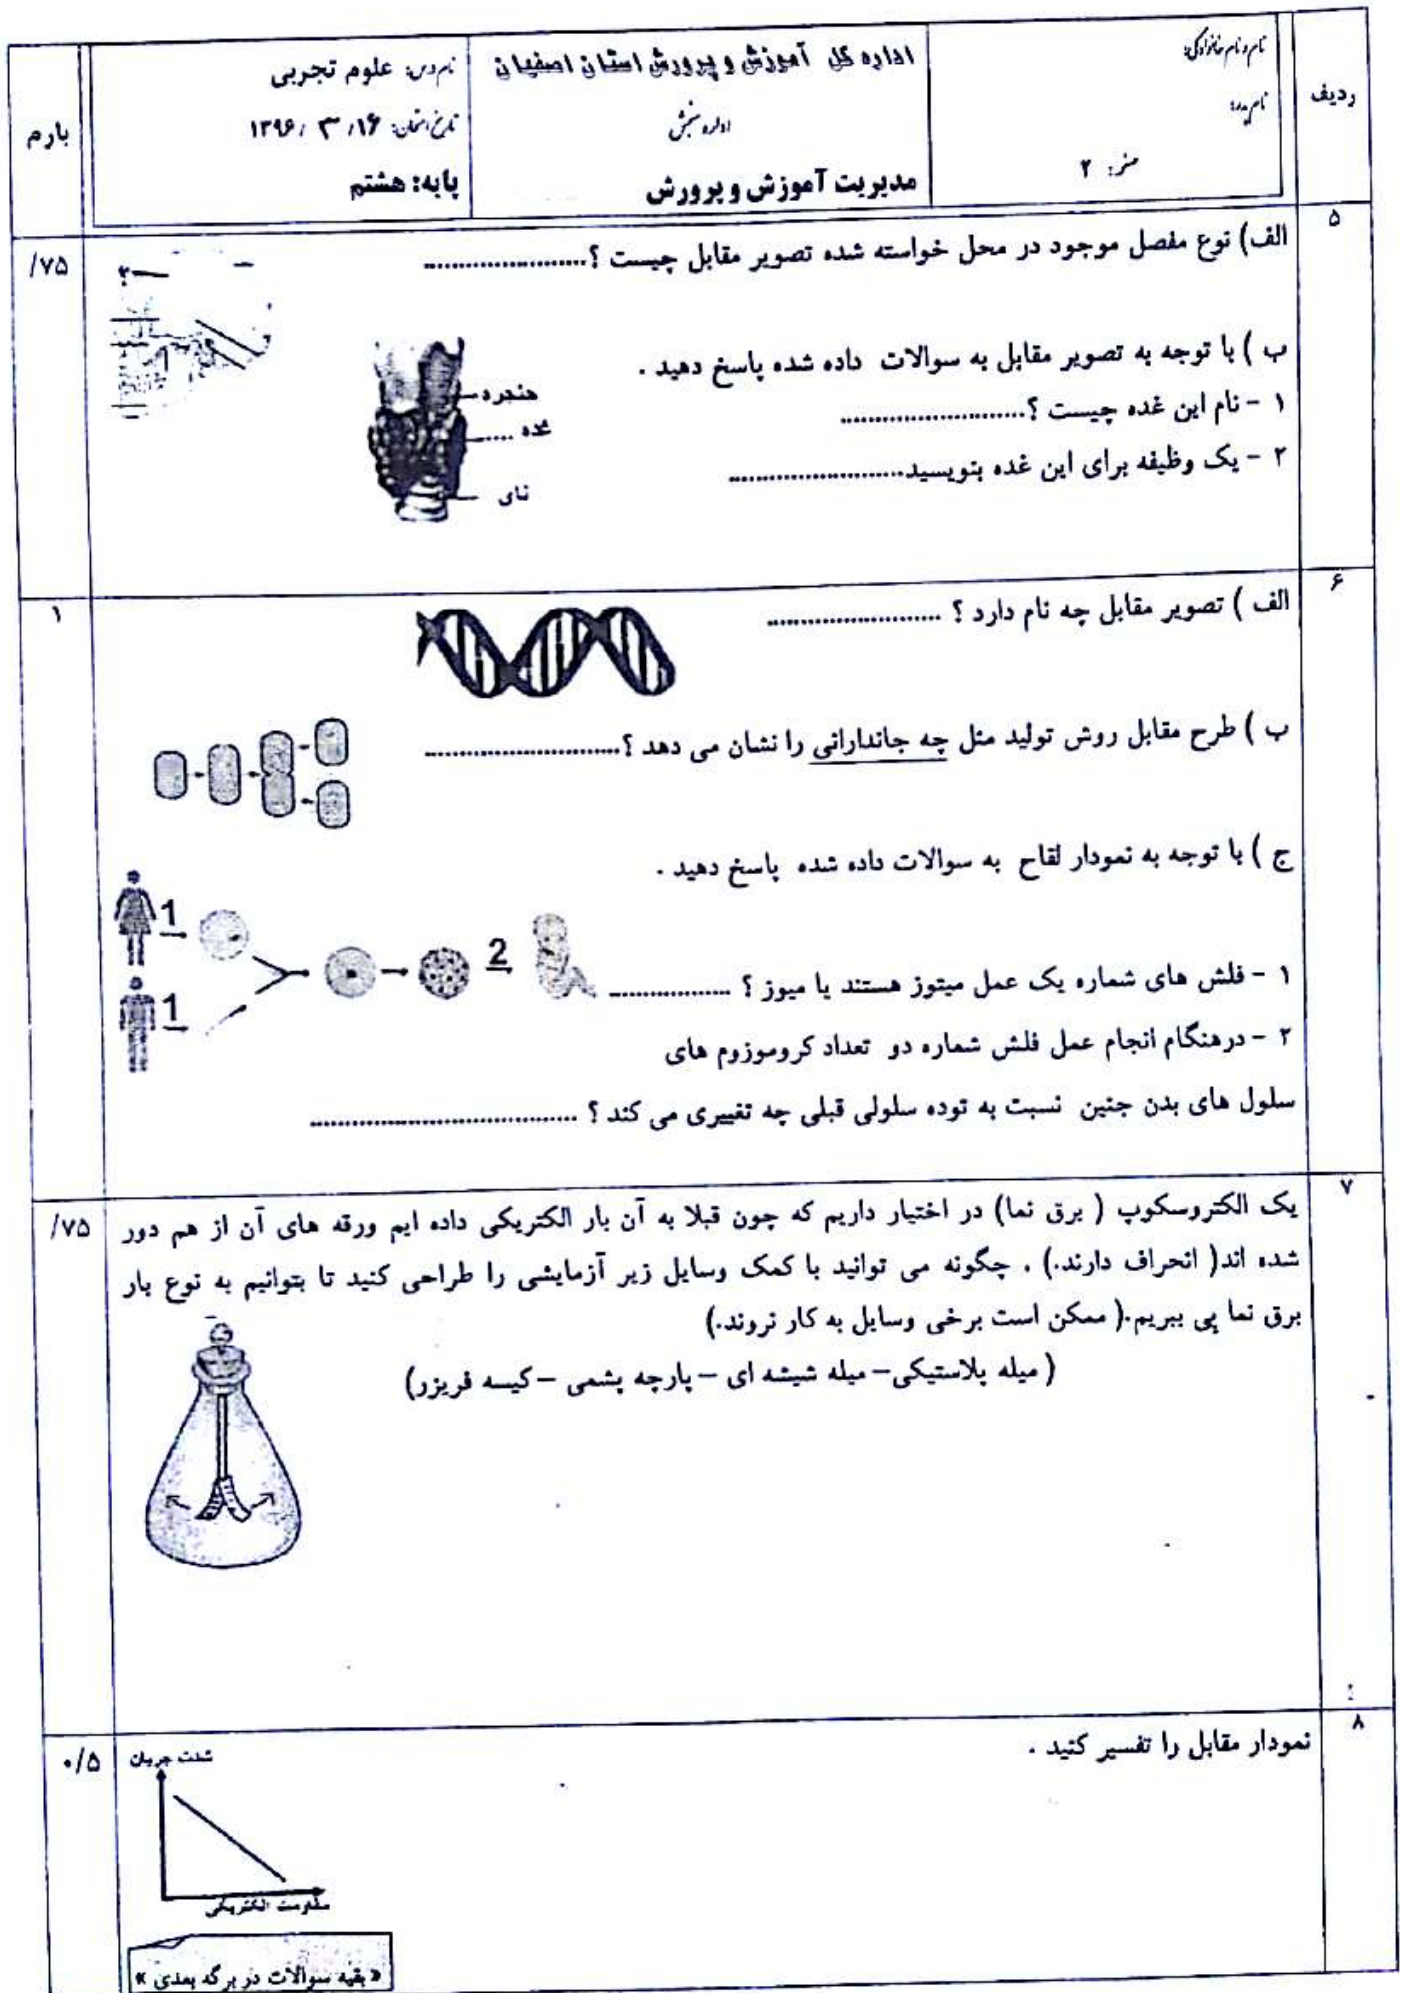 ردیف
نام و نام خانوادگی:
نام پدر:
صفحه: ۲
اداره کل آموزش و پرورش استان اصفهان
اداره سنجش
مدیریت آموزش و پرورش
نام درس: علوم تجربی
تاریخ امتحان: ۱۳۹۶/ ۳ /۱۶
پایه: هشتم
بارم
۵
الف) نوع مفصل موجود در محل خواسته شده تصویر مقابل چیست ؟........................
/۷۵
ب ) با توجه به تصویر مقابل به سوالات داده شده پاسخ دهید .
۱ - نام این غده چیست ؟...........................
۲ - یک وظیفه برای این غده بنویسید..........................
حنجره
غده .....
نای
۶
الف ) تصویر مقابل چه نام دارد ؟ ..........................
۱
ب ) طرح مقابل روش تولید مثل چه جاندارانی را نشان می دهد ؟.............................
ج ) با توجه به نمودار لقاح به سوالات داده شده پاسخ دهید .
1
1
2
۱ - فلش های شماره یک عمل میتوز هستند یا میوز ؟ ..................
۲ - درهنگام انجام عمل فلش شماره دو تعداد کروموزوم های
سلول های بدن جنین نسبت به توده سلولی قبلی چه تغییری می کند ؟ ........................................
۷
یک الکتروسکوپ ( برق نما) در اختیار داریم که چون قبلا به آن بار الکتریکی داده ایم ورقه های آن از هم دور
/۷۵
شده اند( انحراف دارند.) . چگونه می توانید با کمک وسایل زیر آزمایشی را طراحی کنید تا بتوانیم به نوع بار
برق نما پی ببریم.( ممکن است برخی وسایل به کار نروند.)
( میله پلاستیکی– میله شیشه ای –پارچه پشمی –کیسه فریزر)
۸
نمودار مقابل را تفسیر کنید .
۰/۵
شدت جریان
مقاومت الکتریکی
« بقیه سوالات در برگه بعدی »